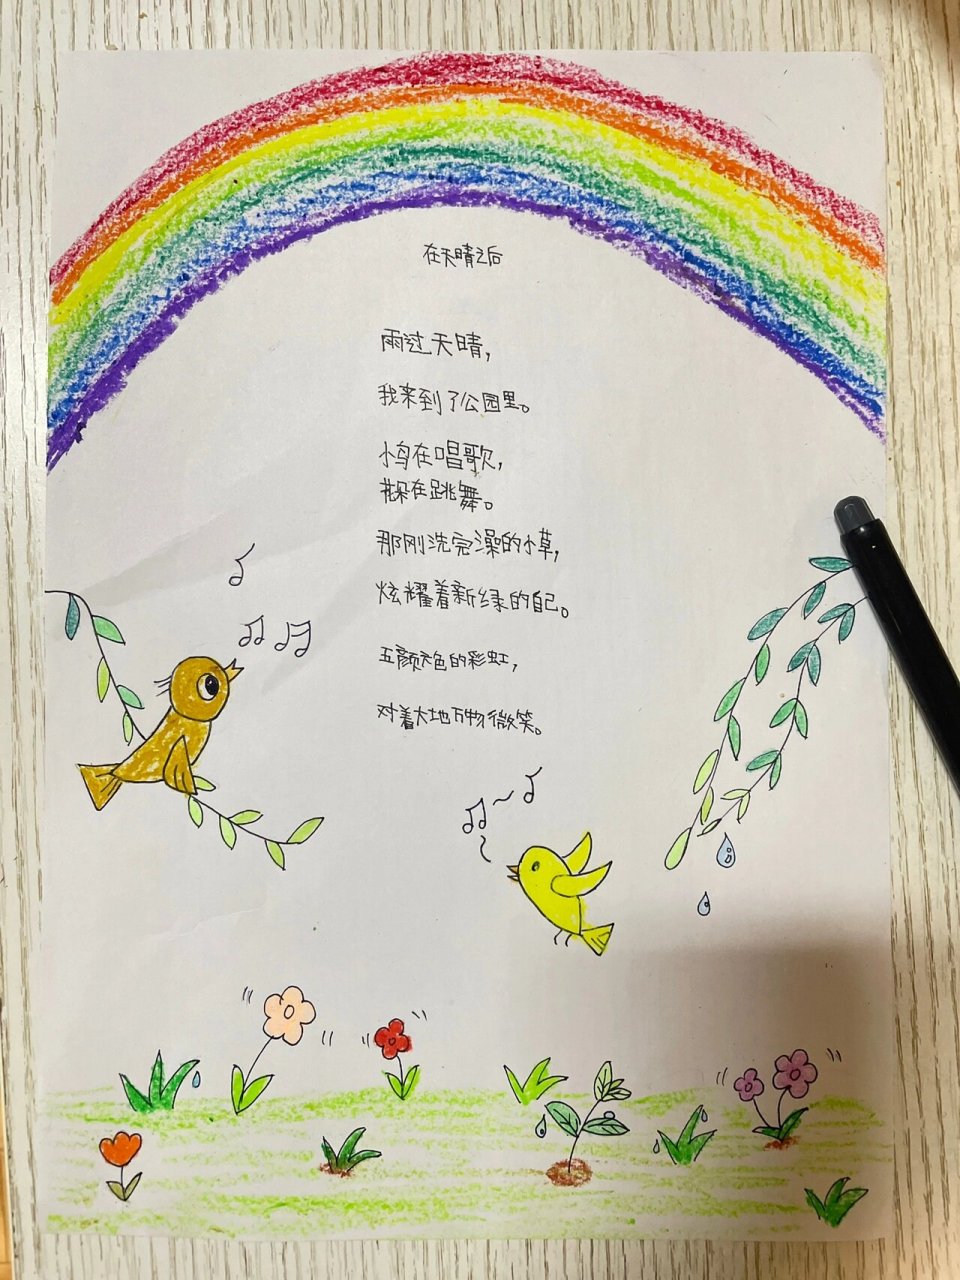 在天晴之后
雨过天晴，
我来到了公园里。
小鸟在唱歌，
花朵在跳舞。
那刚洗完澡的小草，
炫耀着新绿的自己。
五颜六色的彩虹，
对着大地万物微笑。